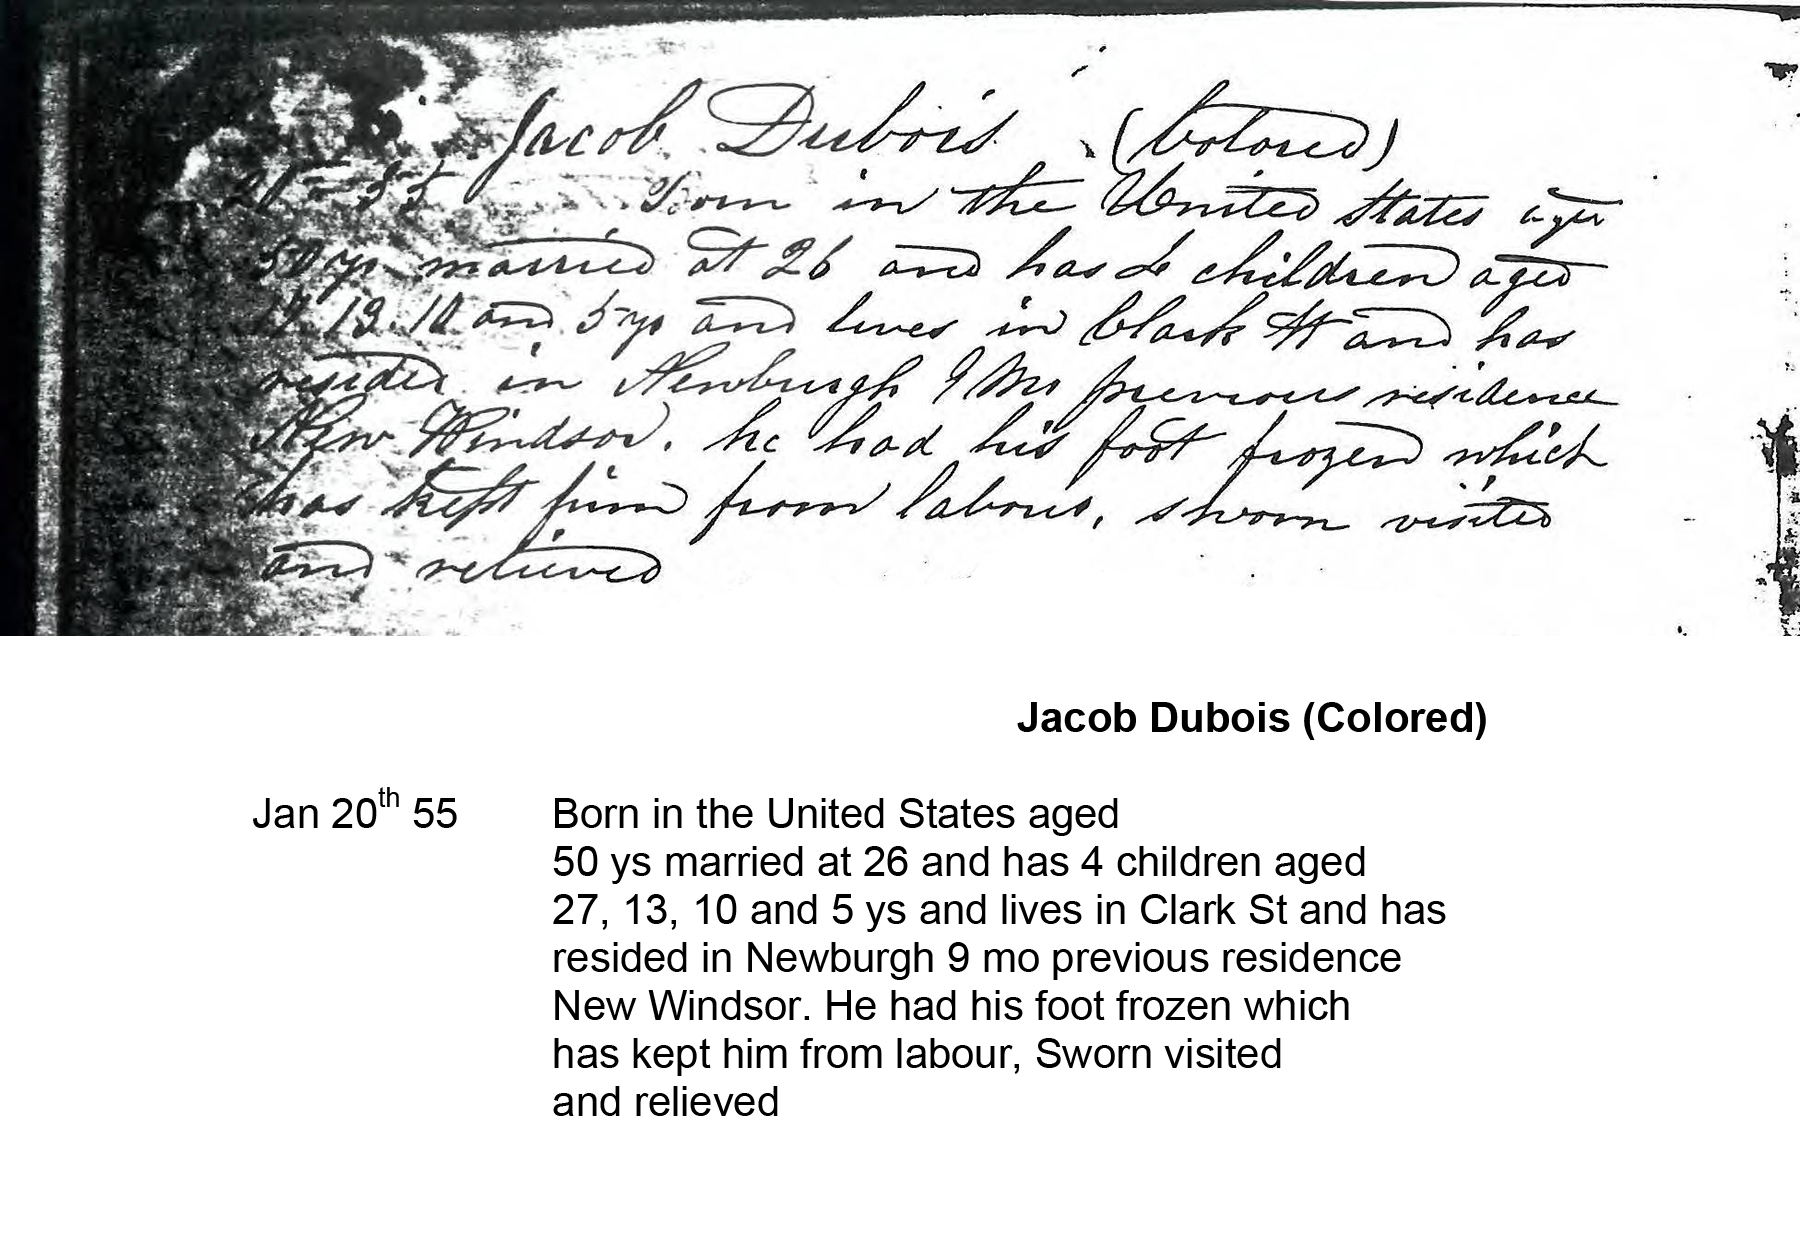 Jacob Dubois (Colored)
55 Born in the United States aged
50 ys married at 26 and has 4 children aged
13 10 and 5 ys and lives in Clark St and has
resided in Newburgh 9 Mo previous residence
New Windsor. he had his foot frozen which
has kept him from labour, sworn visited
and relieved
Jacob Dubois (Colored)
Jan 20th 55 Born in the United States aged
50 ys married at 26 and has 4 children aged
27, 13, 10 and 5 ys and lives in Clark St and has
resided in Newburgh 9 mo previous residence
New Windsor. He had his foot frozen which
has kept him from labour, Sworn visited
and relieved